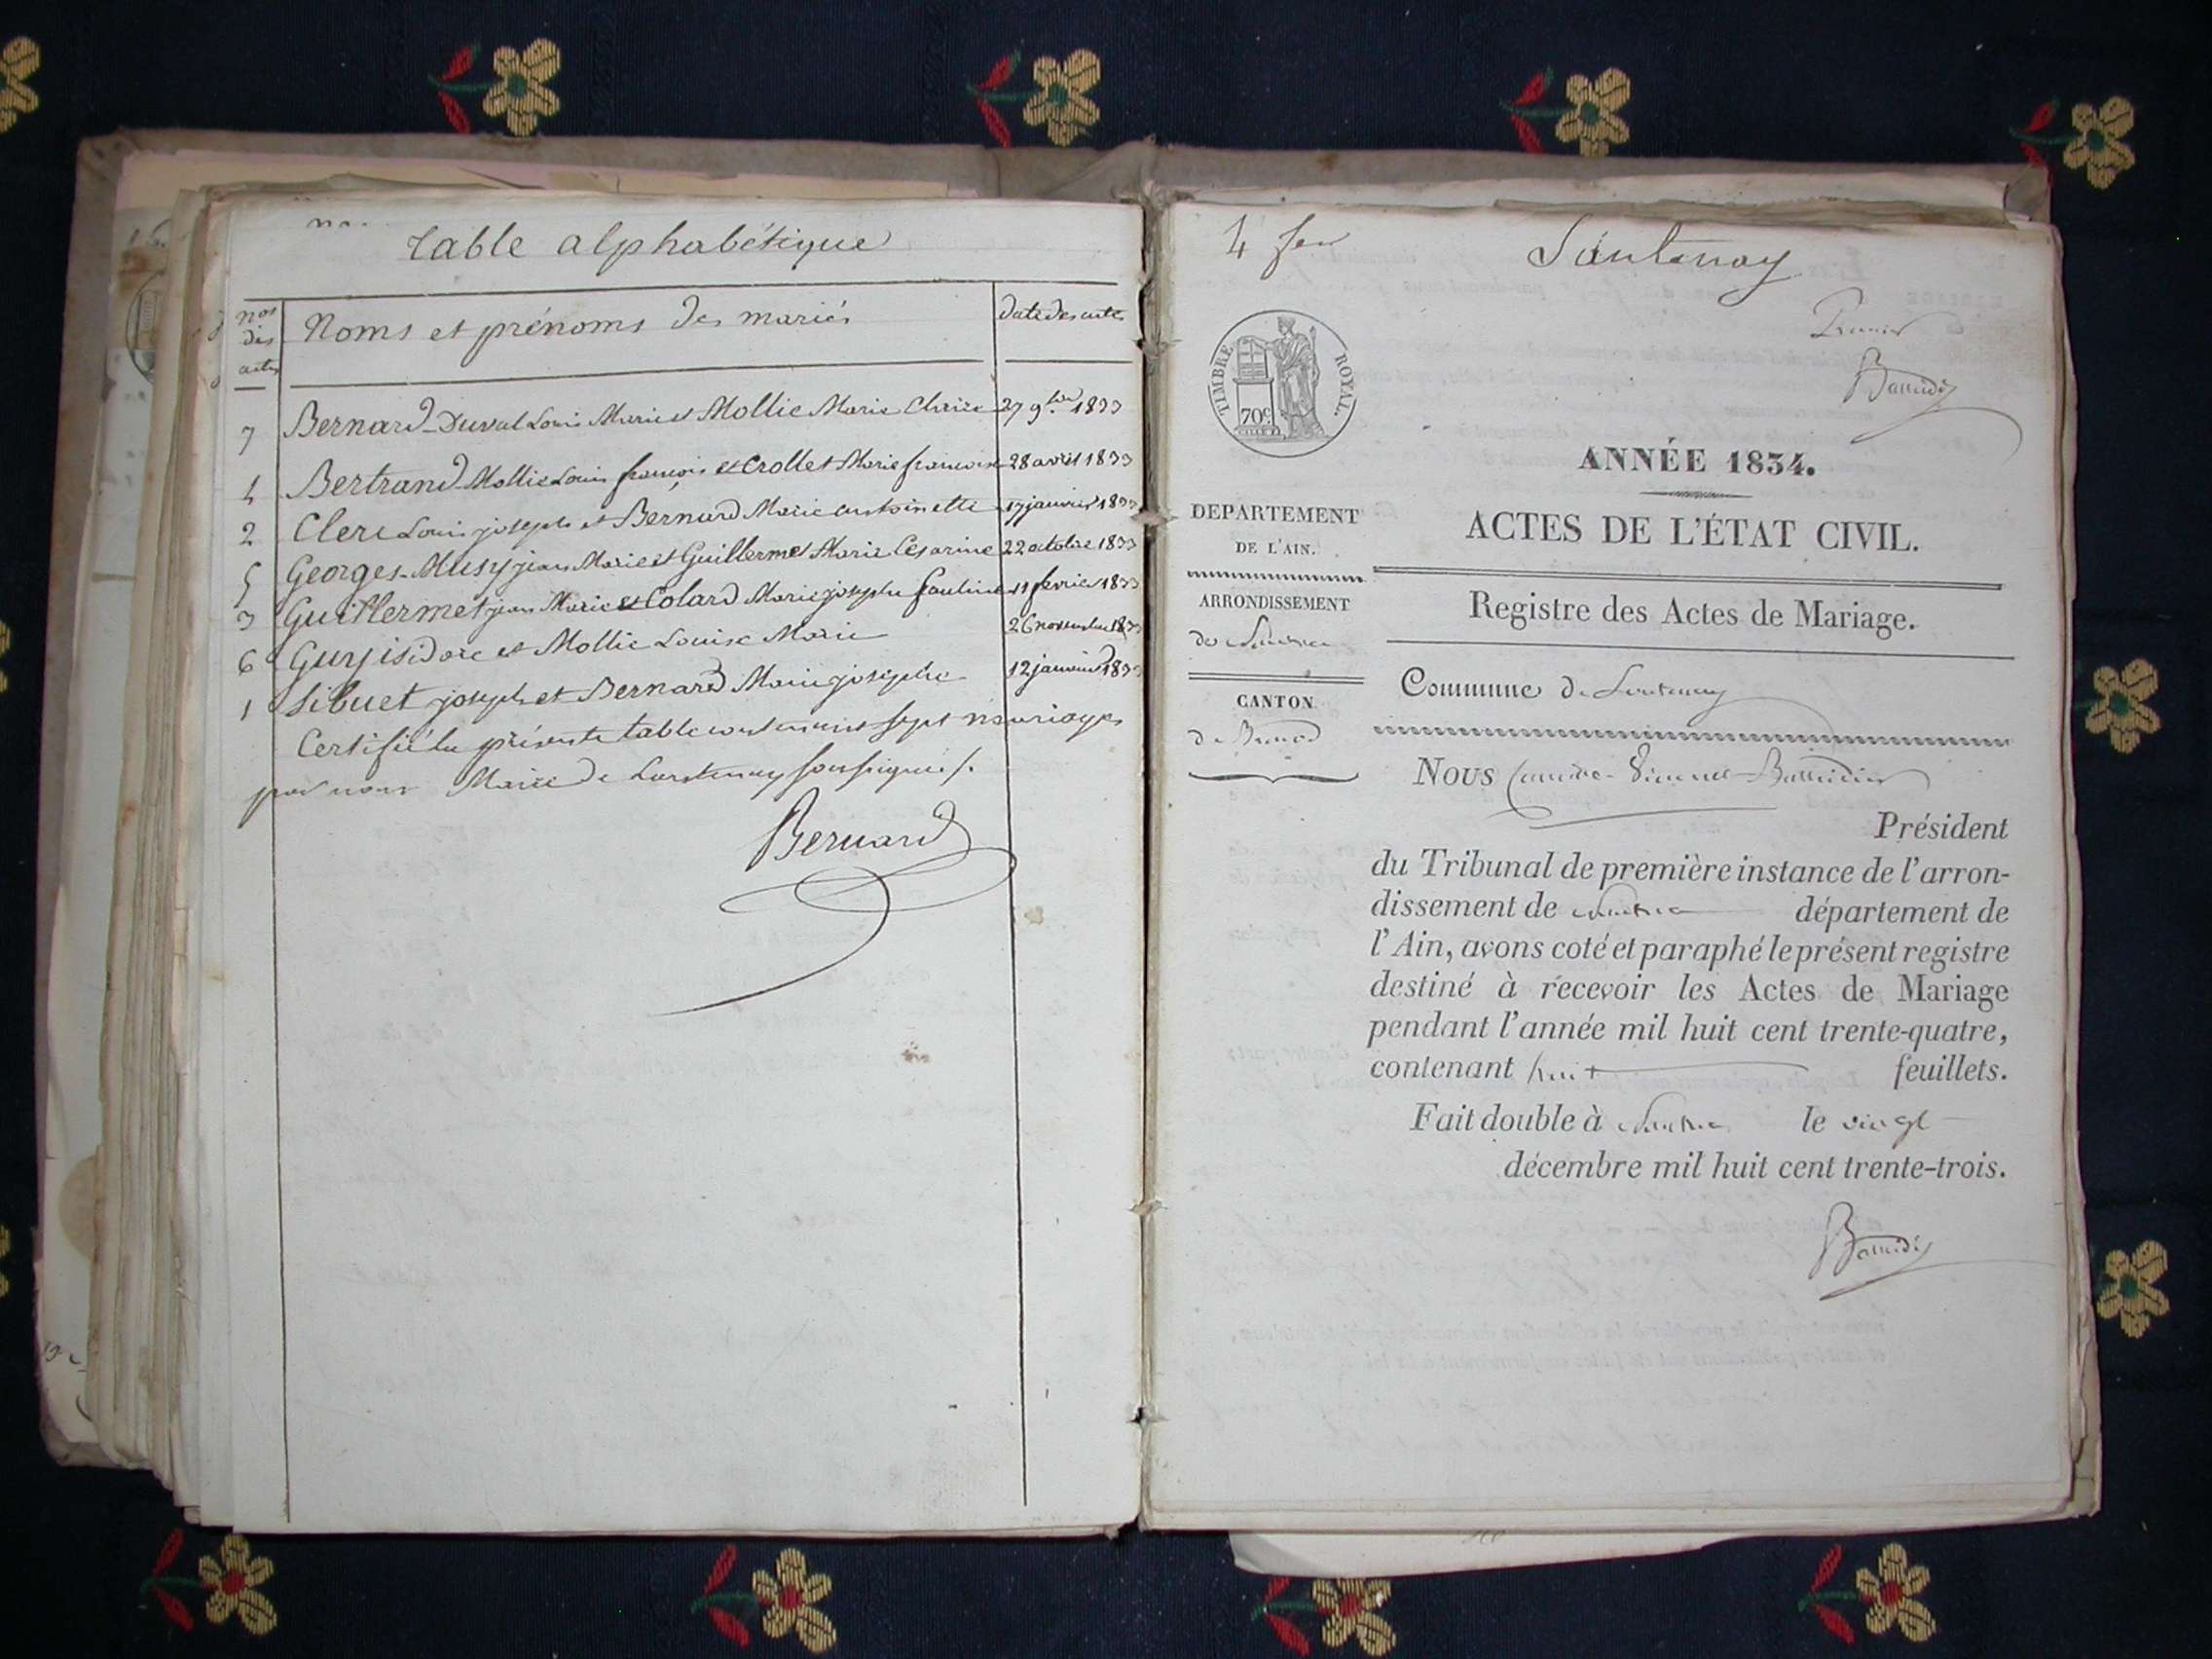 table alphabétique
nos des actes
Noms et prénoms des mariés
date des actes
7 Bernard-Duval Louis Marie et Mollie Marie Claire 27 9bre 1833
4 Bertrand-Mollie Louis françois et Crollet Marie françoise 28 avril 1833
2 Clerc Louis joseph et Bernard Marie antoinette 17 janvier 1833
5 Georges-Musy jean Marie et Guillermet Marie Césarine 22 octobre 1833
3 Guillermet jean Marie et Colard Marie josephe pauline 11 fevrier 1833
6 Guy isidore et Mollie Louise Marie 26 novembre 1833
1 Sibuet joseph et Bernard Marie josephe 12 janvier 1833
Certifié la présente table contenant sept mariages
par nous Maire de Lantenay soussigné.
Bernard
4 fer
Lantenay
Premier
TIMBRE ROYAL.
70c
ANNÉE 1834.
DEPARTEMENT
DE L'AIN.
ACTES DE L'ÉTAT CIVIL.
ARRONDISSEMENT
de Nantua
Registre des Actes de Mariage.
CANTON
de Brenod
Commune de Lantenay
NOUS
Président
du Tribunal de première instance de l'arron-
dissement de Nantua département de
l'Ain, avons coté et paraphé le présent registre
destiné à recevoir les Actes de Mariage
pendant l'année mil huit cent trente-quatre,
contenant huit feuillets.
Fait double à Nantua le vingt
décembre mil huit cent trente-trois.